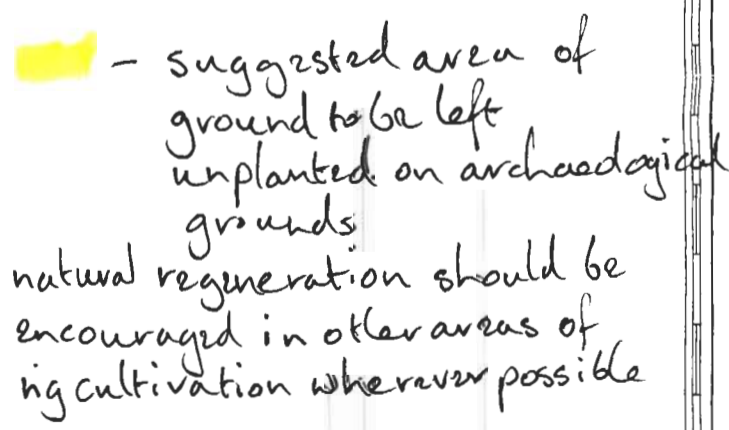 - suggested area of
ground to be left
unplanted on archaeological
grounds
natural regeneration should be
encouraged in other areas of
rig cultivation wherever possible